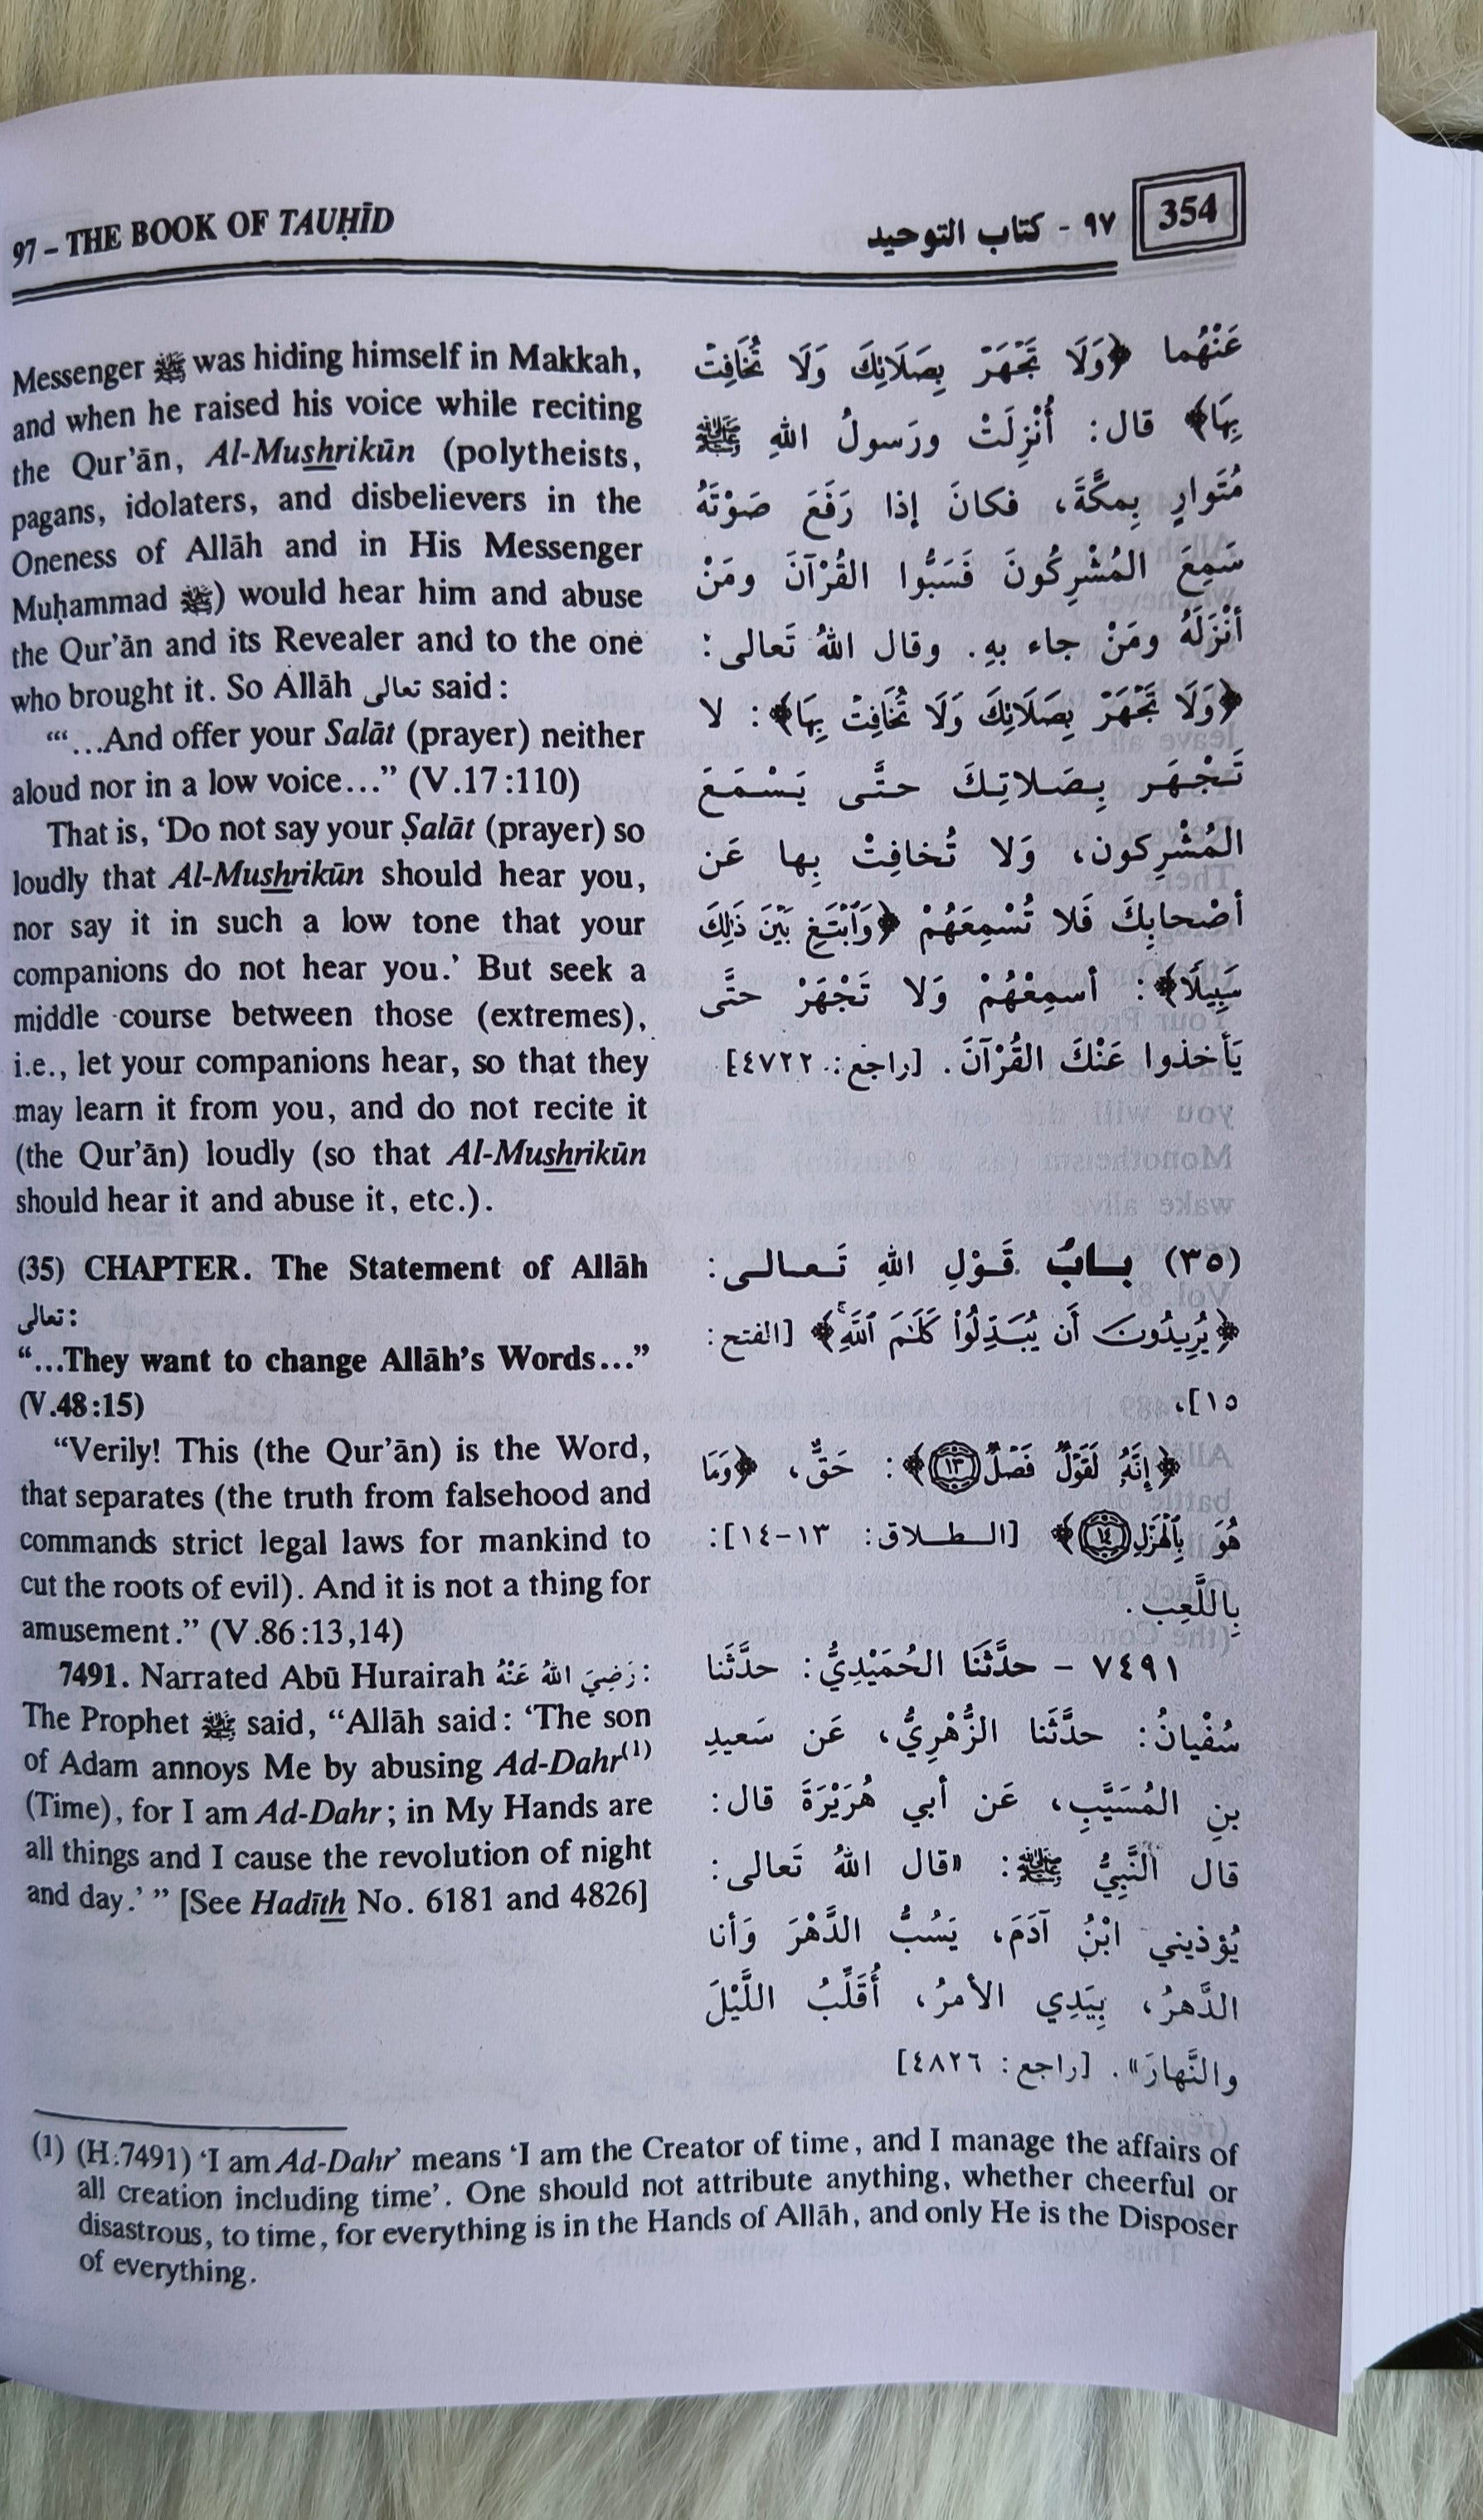 97 – THE BOOK OF TAUḤĪD
٩٧ - كتاب التوحيد
354
Messenger ﷺ was hiding himself in Makkah,
and when he raised his voice while reciting
the Qur’ān, Al-Mushrikūn (polytheists,
pagans, idolaters, and disbelievers in the
Oneness of Allāh and in His Messenger
Muḥammad ﷺ) would hear him and abuse
the Qur’ān and its Revealer and to the one
who brought it. So Allāh تعالى said:
“‘…And offer your Salāt (prayer) neither
aloud nor in a low voice…” (V.17:110)
That is, ‘Do not say your Ṣalāt (prayer) so
loudly that Al-Mushrikūn should hear you,
nor say it in such a low tone that your
companions do not hear you.’ But seek a
middle course between those (extremes),
i.e., let your companions hear, so that they
may learn it from you, and do not recite it
(the Qur’ān) loudly (so that Al-Mushrikūn
should hear it and abuse it, etc.).
(35) CHAPTER. The Statement of Allāh
تعالى:
“…They want to change Allāh’s Words…”
(V.48:15)
“Verily! This (the Qur’ān) is the Word,
that separates (the truth from falsehood and
commands strict legal laws for mankind to
cut the roots of evil). And it is not a thing for
amusement.” (V.86:13,14)
7491. Narrated Abū Hurairah رَضِيَ اللهُ عَنْهُ:
The Prophet ﷺ said, “Allāh said: ‘The son
of Adam annoys Me by abusing Ad-Dahr(1)
(Time), for I am Ad-Dahr; in My Hands are
all things and I cause the revolution of night
and day.’ ” [See Hadīth No. 6181 and 4826]
عَنْهُما ﴿وَلَا تَجْهَرْ بِصَلَاتِكَ وَلَا تُخَافِتْ
بِهَا﴾ قال: أُنْزِلَتْ ورَسولُ اللهِ ﷺ
مُتَوارٍ بِمكَّةَ، فكانَ إذا رَفَعَ صَوْتَهُ
سَمِعَ المُشْرِكُونَ فَسَبُّوا القُرْآنَ ومَنْ
أنْزَلَهُ ومَنْ جاء بهِ. وقال اللهُ تَعالى:
﴿وَلَا تَجْهَرْ بِصَلَاتِكَ وَلَا تُخَافِتْ بِهَا﴾: لا
تَجْهَر بِصَلاتِكَ حتَّى يَسْمَعَ
المُشْرِكون، وَلا تُخافِتْ بِها عَن
أصْحابِكَ فَلا تُسْمِعَهُمْ ﴿وَابْتَغِ بَيْنَ ذَٰلِكَ
سَبِيلًا﴾: أسمِعْهُمْ وَلا تَجْهَرْ حتَّى
يَأخذوا عَنْكَ القُرْآنَ. [راجع: ٤٧٢٢]
(٣٥) بابُ قَوْلِ اللهِ تَعالى:
﴿يُرِيدُونَ أَن يُبَدِّلُوا۟ كَلَٰمَ ٱللَّهِ﴾ [الفتح:
١٥]،
﴿إِنَّهُ لَقَوْلٌ فَصْلٌ ١٣﴾: حَقٌّ، ﴿وَمَا
هُوَ بِٱلْهَزْلِ ١٤﴾ [الطلاق: ١٣-١٤]:
بِاللَّعِب.
٧٤٩١ – حدَّثَنَا الحُمَيْدِيُّ: حدَّثَنا
سُفْيانُ: حدَّثَنا الزُّهْرِيُّ، عَن سَعيدِ
بنِ المُسَيَّبِ، عَن أبي هُرَيْرَةَ قال:
قال النَّبِيُّ ﷺ: «قال اللهُ تَعالى:
يُؤذيني ابْنُ آدَمَ، يَسُبُّ الدَّهْرَ وَأنا
الدَّهرُ، بِيَدِي الأمرُ، أُقَلِّبُ اللَّيْلَ
والنَّهارَ». [راجع: ٤٨٢٦]
(1) (H.7491) ‘I am Ad-Dahr’ means ‘I am the Creator of time, and I manage the affairs of
all creation including time’. One should not attribute anything, whether cheerful or
disastrous, to time, for everything is in the Hands of Allāh, and only He is the Disposer
of everything.